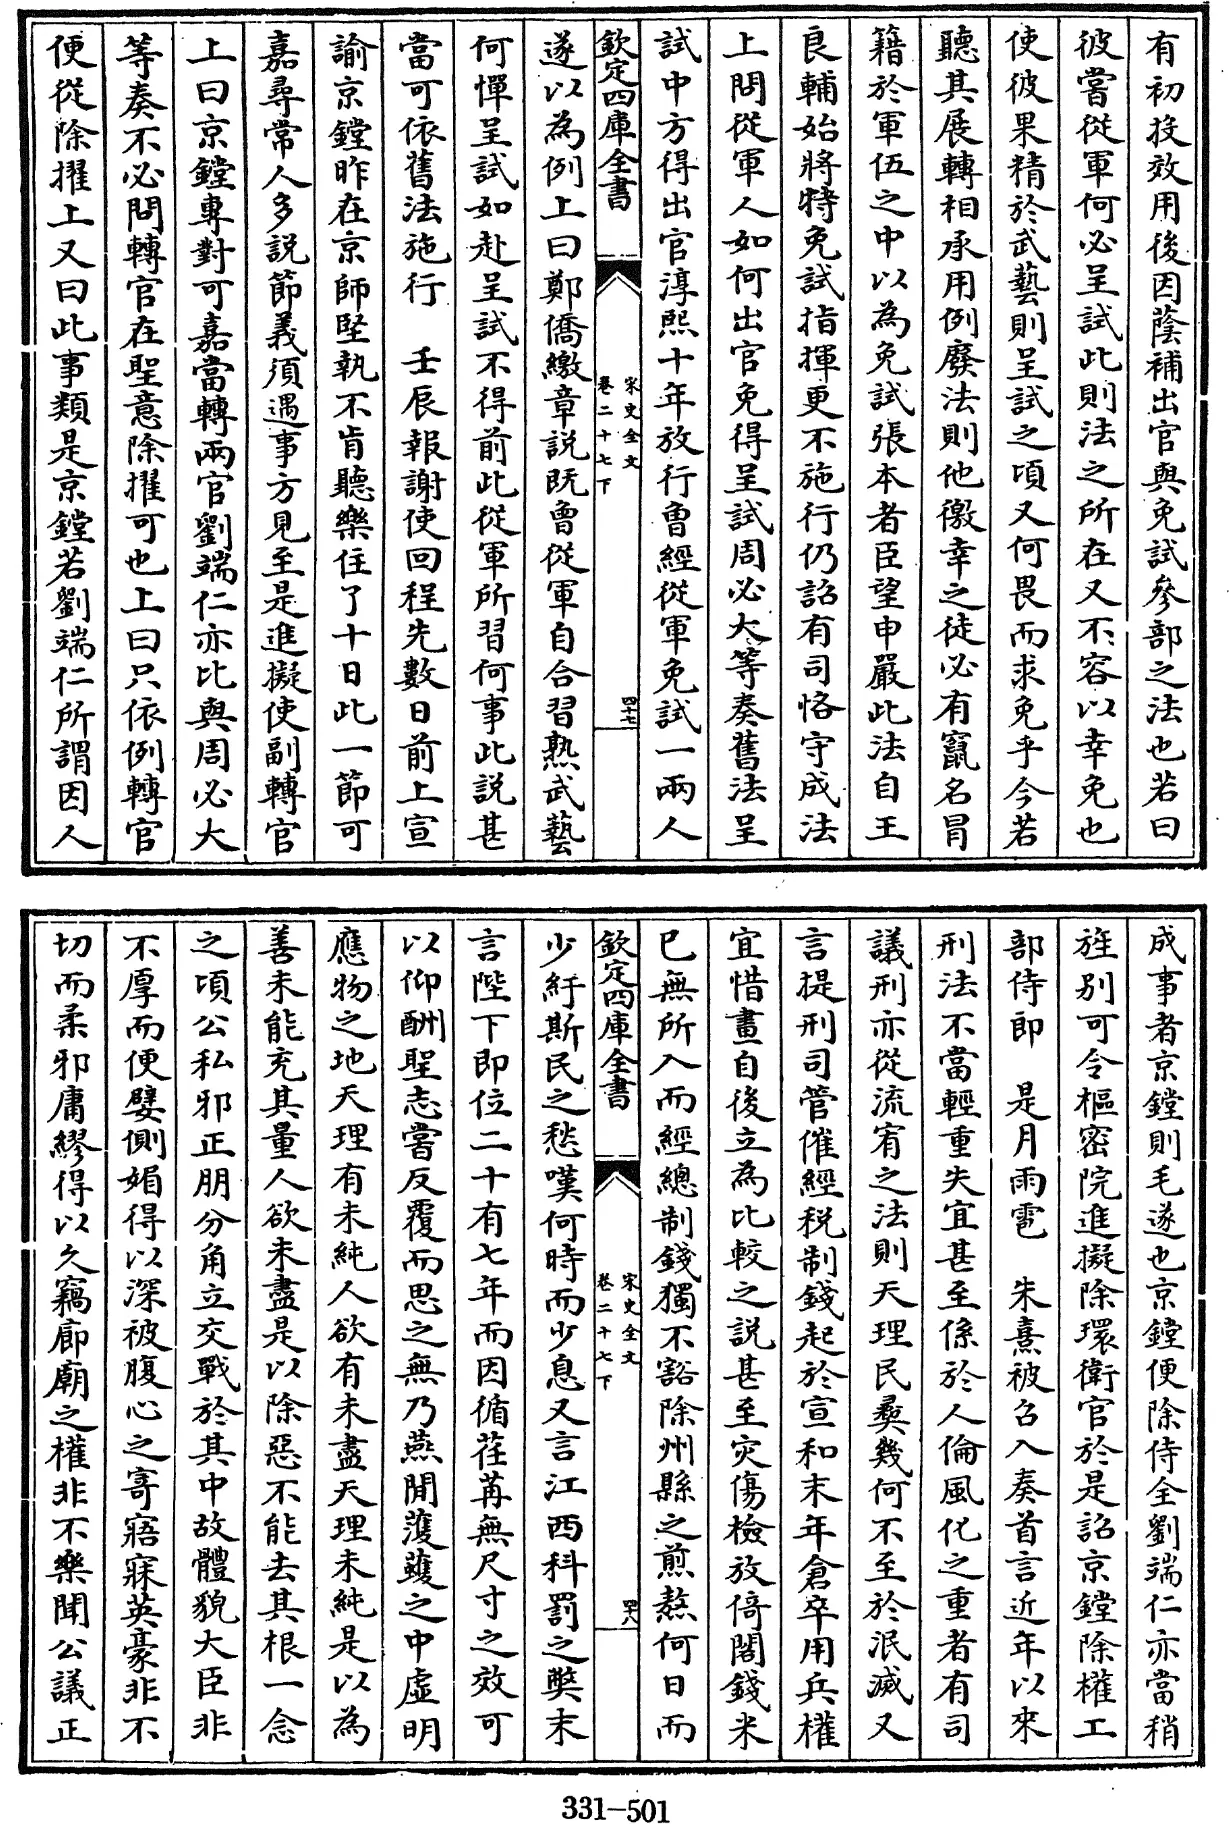 有初投效用後因蔭補出官與免試參部之法也若曰
彼嘗從軍何必呈試此則法之所在又不容以幸免也
使彼果精於武藝則呈試之頃又何畏而求免乎今若
聽其展轉相承用例廢法則他徼幸之徒必有竄名冒
籍於軍伍之中以為免試張本者臣望申嚴此法自王
良輔始將特免試指揮更不施行仍詔有司恪守成法
上問從軍人如何出官免得呈試周必大等奏舊法呈
試中方得出官淳熙十年放行曾經從軍免試一兩人
欽定四庫全書
宋史全文
卷二十七下
四十七
遂以為例上曰鄭僑繳章說既曾從軍自合習熟武藝
何憚呈試如赴呈試不得前此從軍所習何事此說甚
當可依舊法施行 壬辰報謝使回程先數日前上宣
諭京鏜昨在京師堅執不肯聽樂住了十日此一節可
嘉尋常人多說節義須遇事方見至是進擬使副轉官
上曰京鏜專對可嘉當轉兩官劉端仁亦比與周必大
等奏不必問轉官在聖意除擢可也上曰只依例轉官
便從除擢上又曰此事類是京鏜若劉端仁所謂因人
成事者京鏜則毛遂也京鏜便除侍全劉端仁亦當稍
旌別可令樞密院進擬除環衛官於是詔京鏜除權工
部侍郎 是月雨雹 朱熹被召入奏首言近年以來
刑法不當輕重失宜甚至係於人倫風化之重者有司
議刑亦從流宥之法則天理民彝幾何不至於泯滅又
言提刑司管催經稅制錢起於宣和末年倉卒用兵權
宜惜畫自後立為比較之說甚至灾傷檢放倚閣錢米
已無所入而經總制錢獨不豁除州縣之煎熬何日而
欽定四庫全書
宋史全文
卷二十七下
四十八
少紓斯民之愁嘆何時而少息又言江西科罰之獘末
言陛下即位二十有七年而因循荏苒無尺寸之效可
以仰酬聖志嘗反覆而思之無乃燕閒蠖濩之中虛明
應物之地天理有未純人欲有未盡天理未純是以為
善未能充其量人欲未盡是以除惡不能去其根一念
之頃公私邪正朋分角立交戰於其中故體貌大臣非
不厚而便嬖側媚得以深被腹心之寄寤寐英豪非不
切而柔邪庸繆得以久竊廊廟之權非不樂聞公議正
331-501